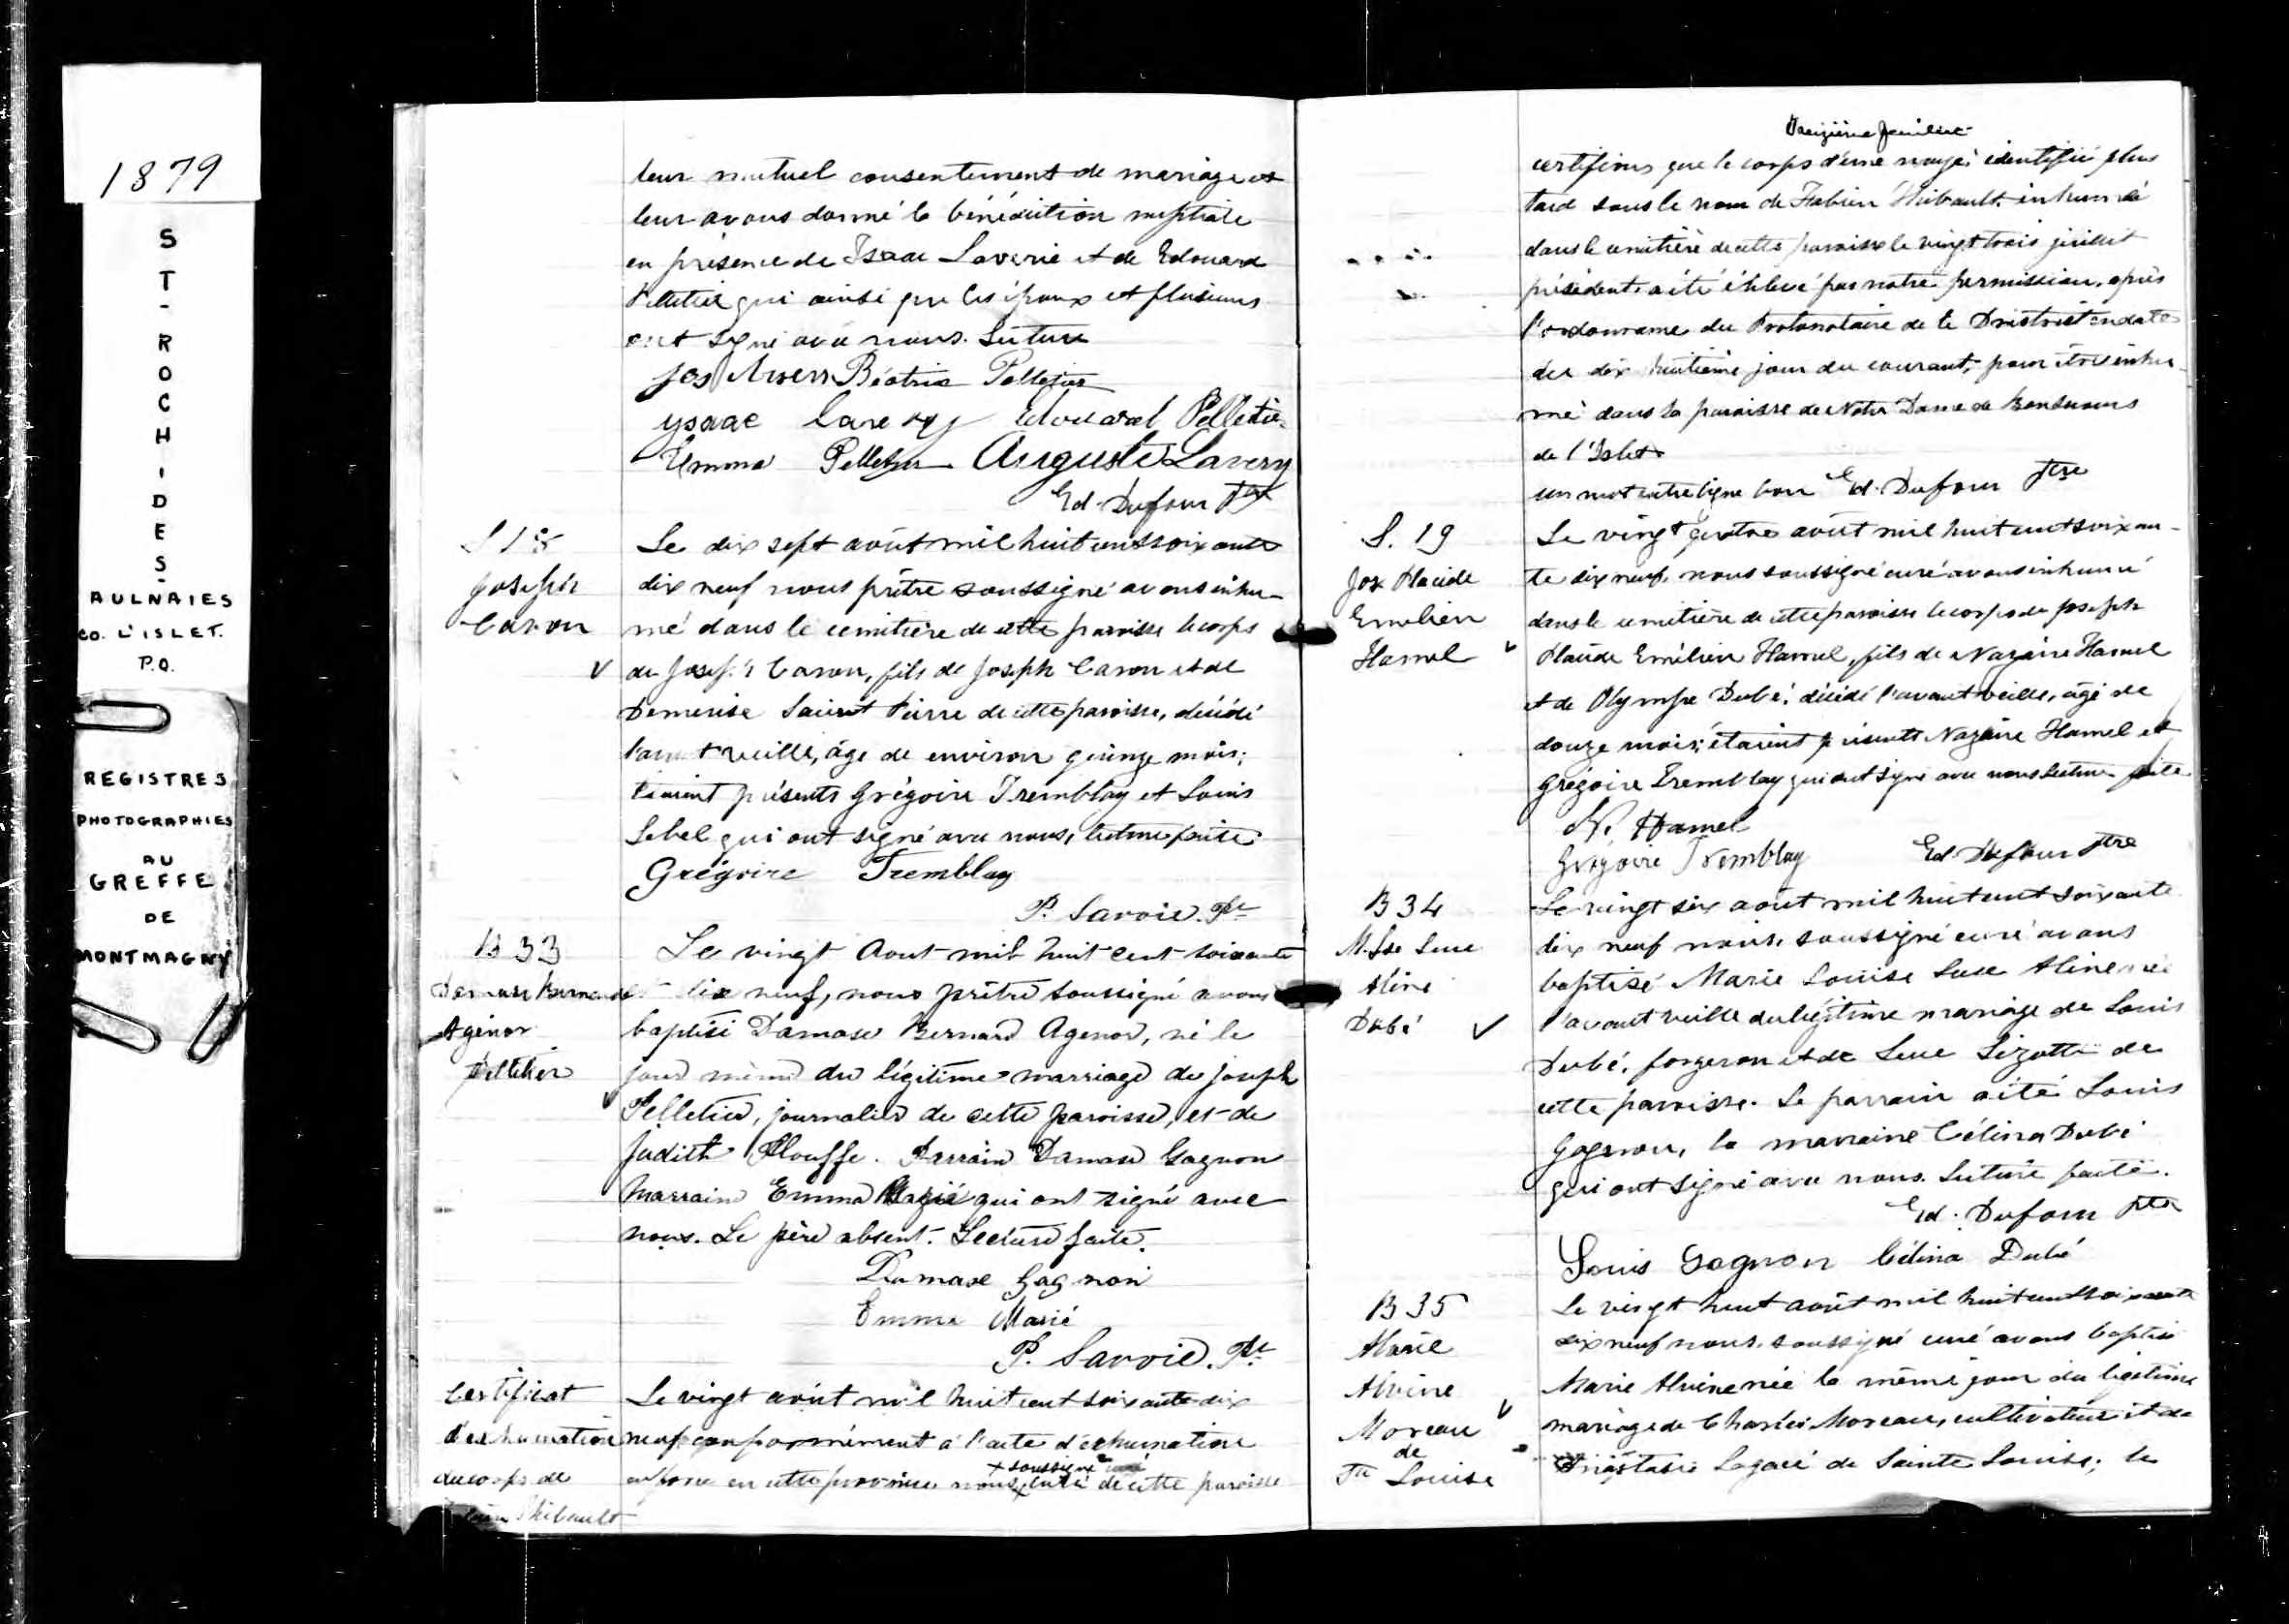 1879
ST-ROCH-DES-
AULNAIES
CO. L'ISLET.
P.Q.
REGISTRES
PHOTOGRAPHIES
AU
GREFFE
DE
MONTMAGNY
leur mutuel consentement de mariage et
leur avons donné la bénédiction nuptiale
en présence de Isaac Laverie et de Edouard
Pelletier qui ainsi que les époux et plusieurs
ont signé avec nous. Lecture
Jos Béatrix Pelletier
Ysaac Lavery Edouard Pelletier
Emma Pelletier Auguste Lavery
Ed. Dufour Ptre
S 18
Joseph
Caron
Le dix sept août mil huit cent soixante
dix neuf nous prêtre soussigné avons inhu-
mé dans le cimitière de cette paroisse le corps
de Joseph Caron, fils de Joseph Caron et de
Demerise Saint Pierre de cette paroisse, décédé
l'avant veille, âgé de environ quinze mois;
étaient présents Grégoire Tremblay et Louis
Lebel qui ont signé avec nous, lecture faite
Grégoire Tremblay
P. Savoie. Pt
B 33
Damase Bernard
Agénor
Pelletier
Le vingt Aout mil huit cent soixante
et dix neuf, nous prêtre soussigné avons
baptisé Damase Bernard Agenor, né le
jour même du légitime marriage de Joseph
Pelletier, journalier de cette paroisse, et de
Judith Plouffe. Parrain Damase Gagnon
Marraine Emma qui ont signé avec
nous. Le père absent. Lecture faite.
Damase Gagnon
Emma Marié
P. Savoie. Pt
Certificat
d'exhumation
du corps de
Thibault
Le vingt août mil huit cent soixante dix
neuf conformément à l'acte d'exhumation
en force en cette province nous x curé de cette paroisse
+ soussigné
certifions que le corps d'une noyé identifié plus
tard sous le nom de Fabien Thibault inhumé
dans le cimitière de cette paroisse le vingt trois juillet
présédent a été enlevé par notre permission, après
l'ordonnance du Protonotaire de le District en date
du dix huitième jour du courant, pour être inhu-
mé dans la paroisse de Notre Dame de Bonsecours
de l'Islet.
un mot entre ligne bon Ed. Dufour Ptre
S. 19
Jos Placide
Emelien
Hamel
Le vingt quatre août mil huit cent soixan-
te dix neuf, nous soussigné curé avons inhumé
dans le cimitière de cette paroisse le corps de Joseph
Placide Emélien Hamel, fils de Nazaire Hamel
et de Olympe Dubé, décédé l'avant veille, âgé de
douze mois; étaient présents Nazaire Hamel et
Grégoire Tremblay qui ont signé avec nous lecture faite
N. Hamel
Grégoire Tremblay Ed Dufour Ptre
B 34
M. Lse Luce
Aline
Dubé
Le vingt six août mil huit cent soixante
dix neuf nous, soussigné curé avons
baptisé Marie Louise Luce Aline née
l'avant veille du légitime mariage de Louis
Dubé, forgeron et de Luce Lizotte de
cette paroisse. Le parrain a été Louis
Gagnon, la marraine Célina Dubé
qui ont signé avec nous. Lecture faite.
Ed. Dufour Ptre
Louis Gagnon Célina Dubé
B 35
Marie
Alvine
Moreau
de
Ste Louise
Le vingt huit août mil huit cent soixante
dix neuf nous, soussigné curé avons baptisé
Marie Alvine née le même jour du légitime
mariage de Charles Moreau, cultivateur et de
Anastasie Lagacé de Sainte Louise; le